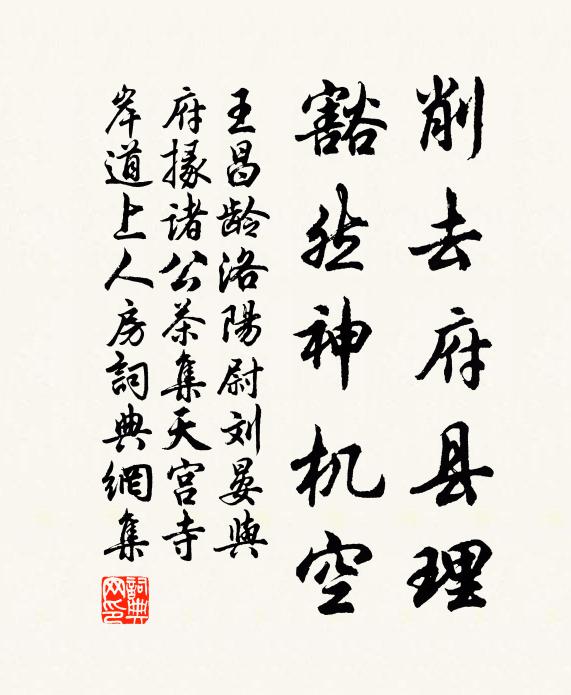 削去府县理
豁然神机空
王昌龄洛陽尉刘晏與
府掾諸公茶集天宮寺
岸道上人房詞典網集
詞典网印